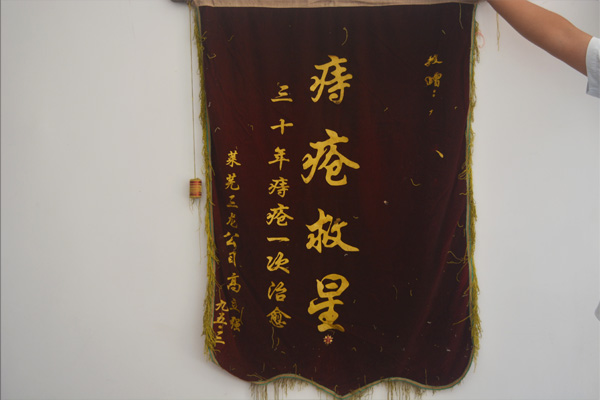 敬赠：
痔疮救星
三十年痔疮一次治愈
莱芜三龙公司高立强
九五·三